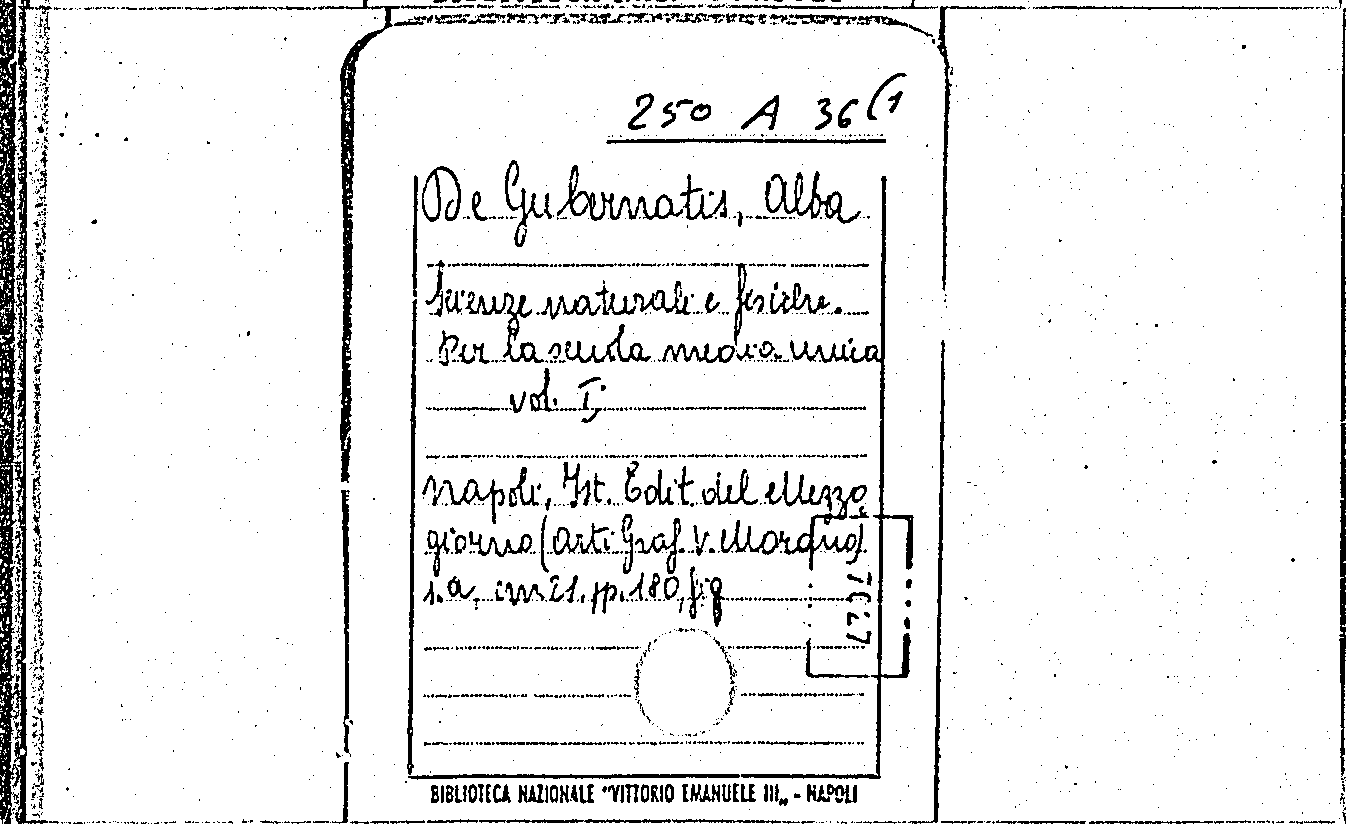 250 A 36(1
De Gubernatis, Alba
Scienze naturali e fisiche.
Per la scuola media unica
vol. I;
Napoli, Ist. Edit. del Mezzo
giorno (Arti Graf. V. Morano)
s.a., cm 21, pp. 180, fig
7027
BIBLIOTECA NAZIONALE "VITTORIO EMANUELE III„ - NAPOLI